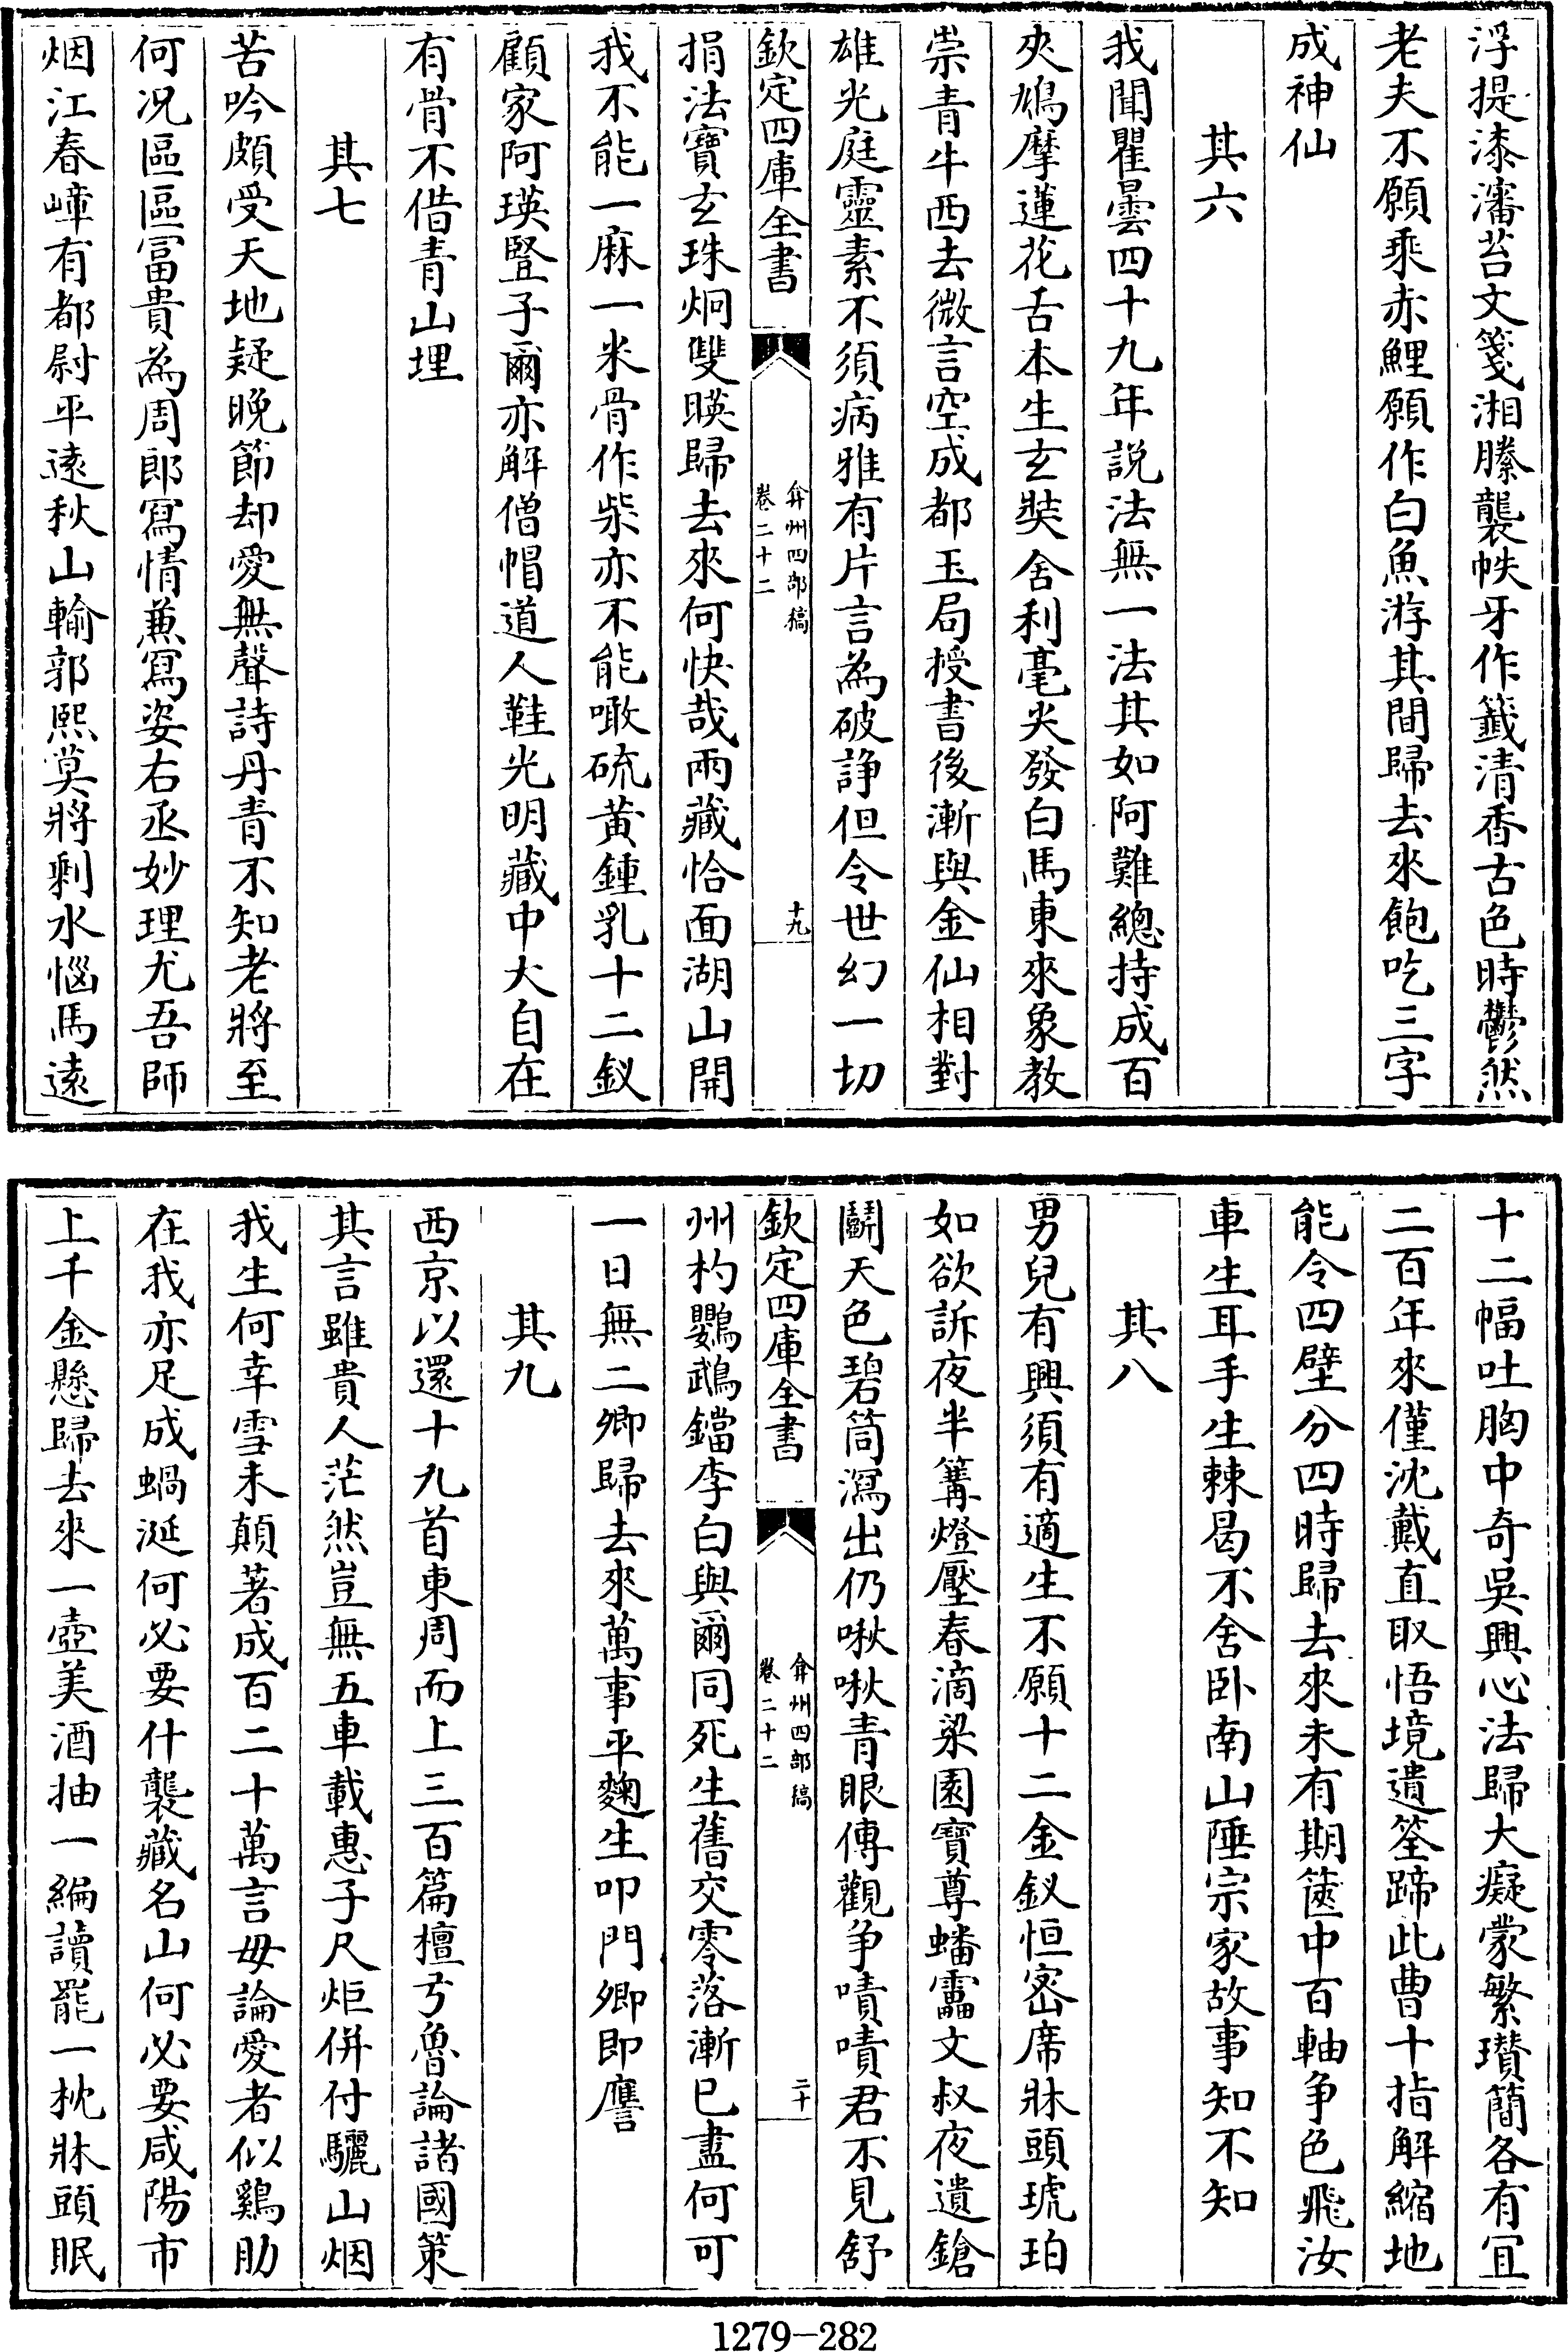 浮提漆瀋苔文箋湘縢襲帙牙作籤清香古色時鬱然
老夫不願乘赤鯉願作白魚游其間歸去來飽吃三字
成神仙
其六
我聞瞿曇四十九年説法無一法其如阿難總持成百
夾鳩摩蓮花舌本生玄奘舍利毫尖發白馬東來象教
崇青牛西去微言空成都玉局授書後漸與金仙相對
雄光庭靈素不須病雅有片言為破諍但令世幻一切
欽定四庫全書
弇州四部稿
卷二十二
十九
捐法寶玄珠炯雙暎歸去來何快哉兩藏恰面湖山開
我不能一麻一米骨作柴亦不能噉硫黄鍾乳十二釵
顧家阿瑛豎子爾亦解僧帽道人鞋光明藏中大自在
有骨不借青山埋
其七
苦吟頗受天地疑晚節却愛無聲詩丹青不知老將至
何况區區富貴為周郎寫情兼寫姿右丞妙理尤吾師
烟江春嶂有都尉平遠秋山輸郭熙莫將剩水惱馬遠
十二幅吐胸中奇吳興心法歸大癡蒙繁瓚簡各有宜
二百年來僅沈戴直取悟境遺筌蹄此曹十指解縮地
能令四壁分四時歸去來未有期篋中百軸争色飛汝
車生耳手生棘曷不舍卧南山陲宗家故事知不知
其八
男兒有興須有適生不願十二金釵恒密席牀頭琥珀
如欲訴夜半篝燈壓春滴梁園寶尊蟠靁文叔夜遺鎗
鬭天色碧筒瀉出仍啾啾青眼傳觀争嘖嘖君不見舒
欽定四庫全書
弇州四部稿
卷二十二
二十
州杓鸚鵡鐺李白與爾同死生舊交零落漸已盡何可
一日無二卿歸去來萬事平麴生叩門卿即譍
其九
西京以還十九首東周而上三百篇檀弓魯論諸國策
其言雖貴人茫然豈無五車載惠子尺炬併付驪山烟
我生何幸雪未顛著成百二十萬言毋論愛者似鷄肋
在我亦足成蝸涎何必要什襲藏名山何必要咸陽市
上千金懸歸去來一壺美酒抽一編讀罷一枕牀頭眠
1279-282